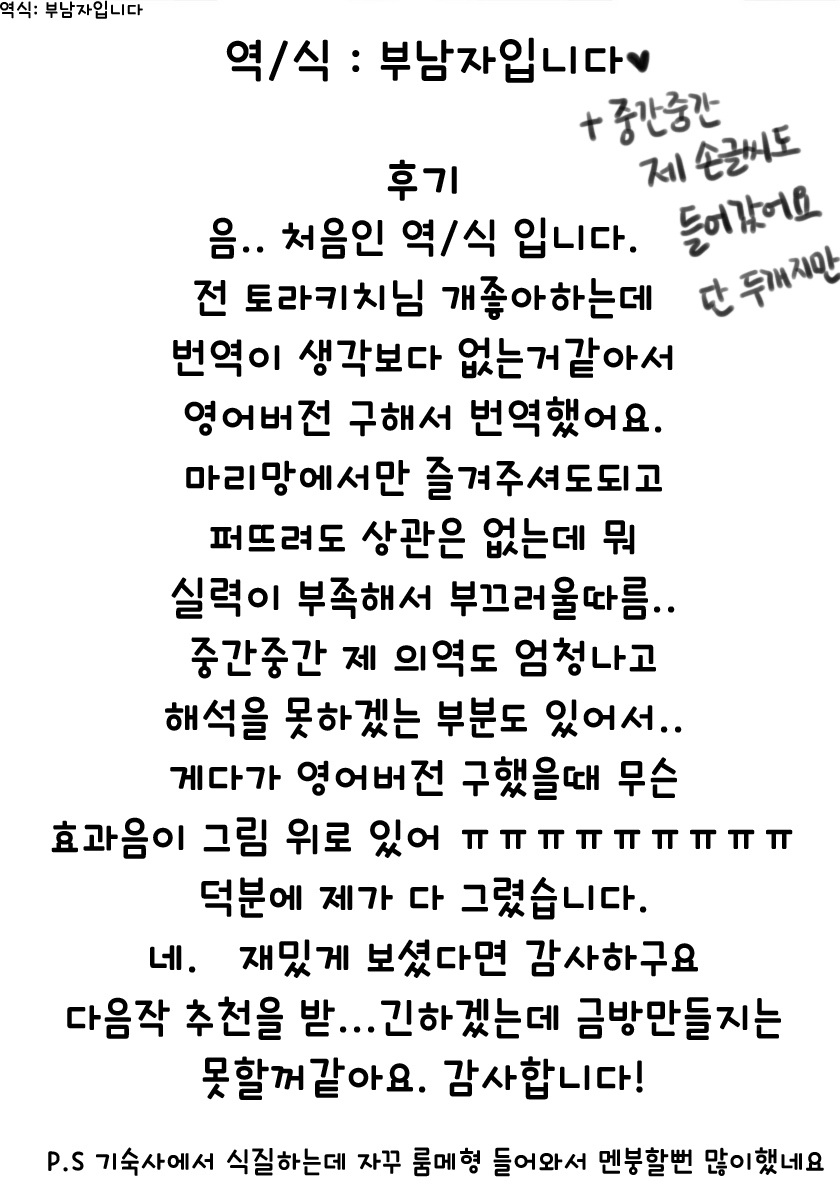 역식: 부남자입니다
역/식 : 부남자입니다♥
+ 중간중간
제 손글씨도
들어갔어요
단 두개지만
후기
음.. 처음인 역/식 입니다.
전 토라키치님 개좋아하는데
번역이 생각보다 없는거같아서
영어버전 구해서 번역했어요.
마리망에서만 즐겨주셔도되고
퍼뜨려도 상관은 없는데 뭐
실력이 부족해서 부끄러울따름..
중간중간 제 의역도 엄청나고
해석을 못하겠는 부분도 있어서..
게다가 영어버전 구했을때 무슨
효과음이 그림 위로 있어 ㅠㅠㅠㅠㅠㅠㅠㅠㅠ
덕분에 제가 다 그렸습니다.
네. 재밌게 보셨다면 감사하구요
다음작 추천을 받...긴하겠는데 금방만들지는
못할꺼같아요. 감사합니다!
P.S 기숙사에서 식질하는데 자꾸 룸메형 들어와서 멘붕할뻔 많이했네요